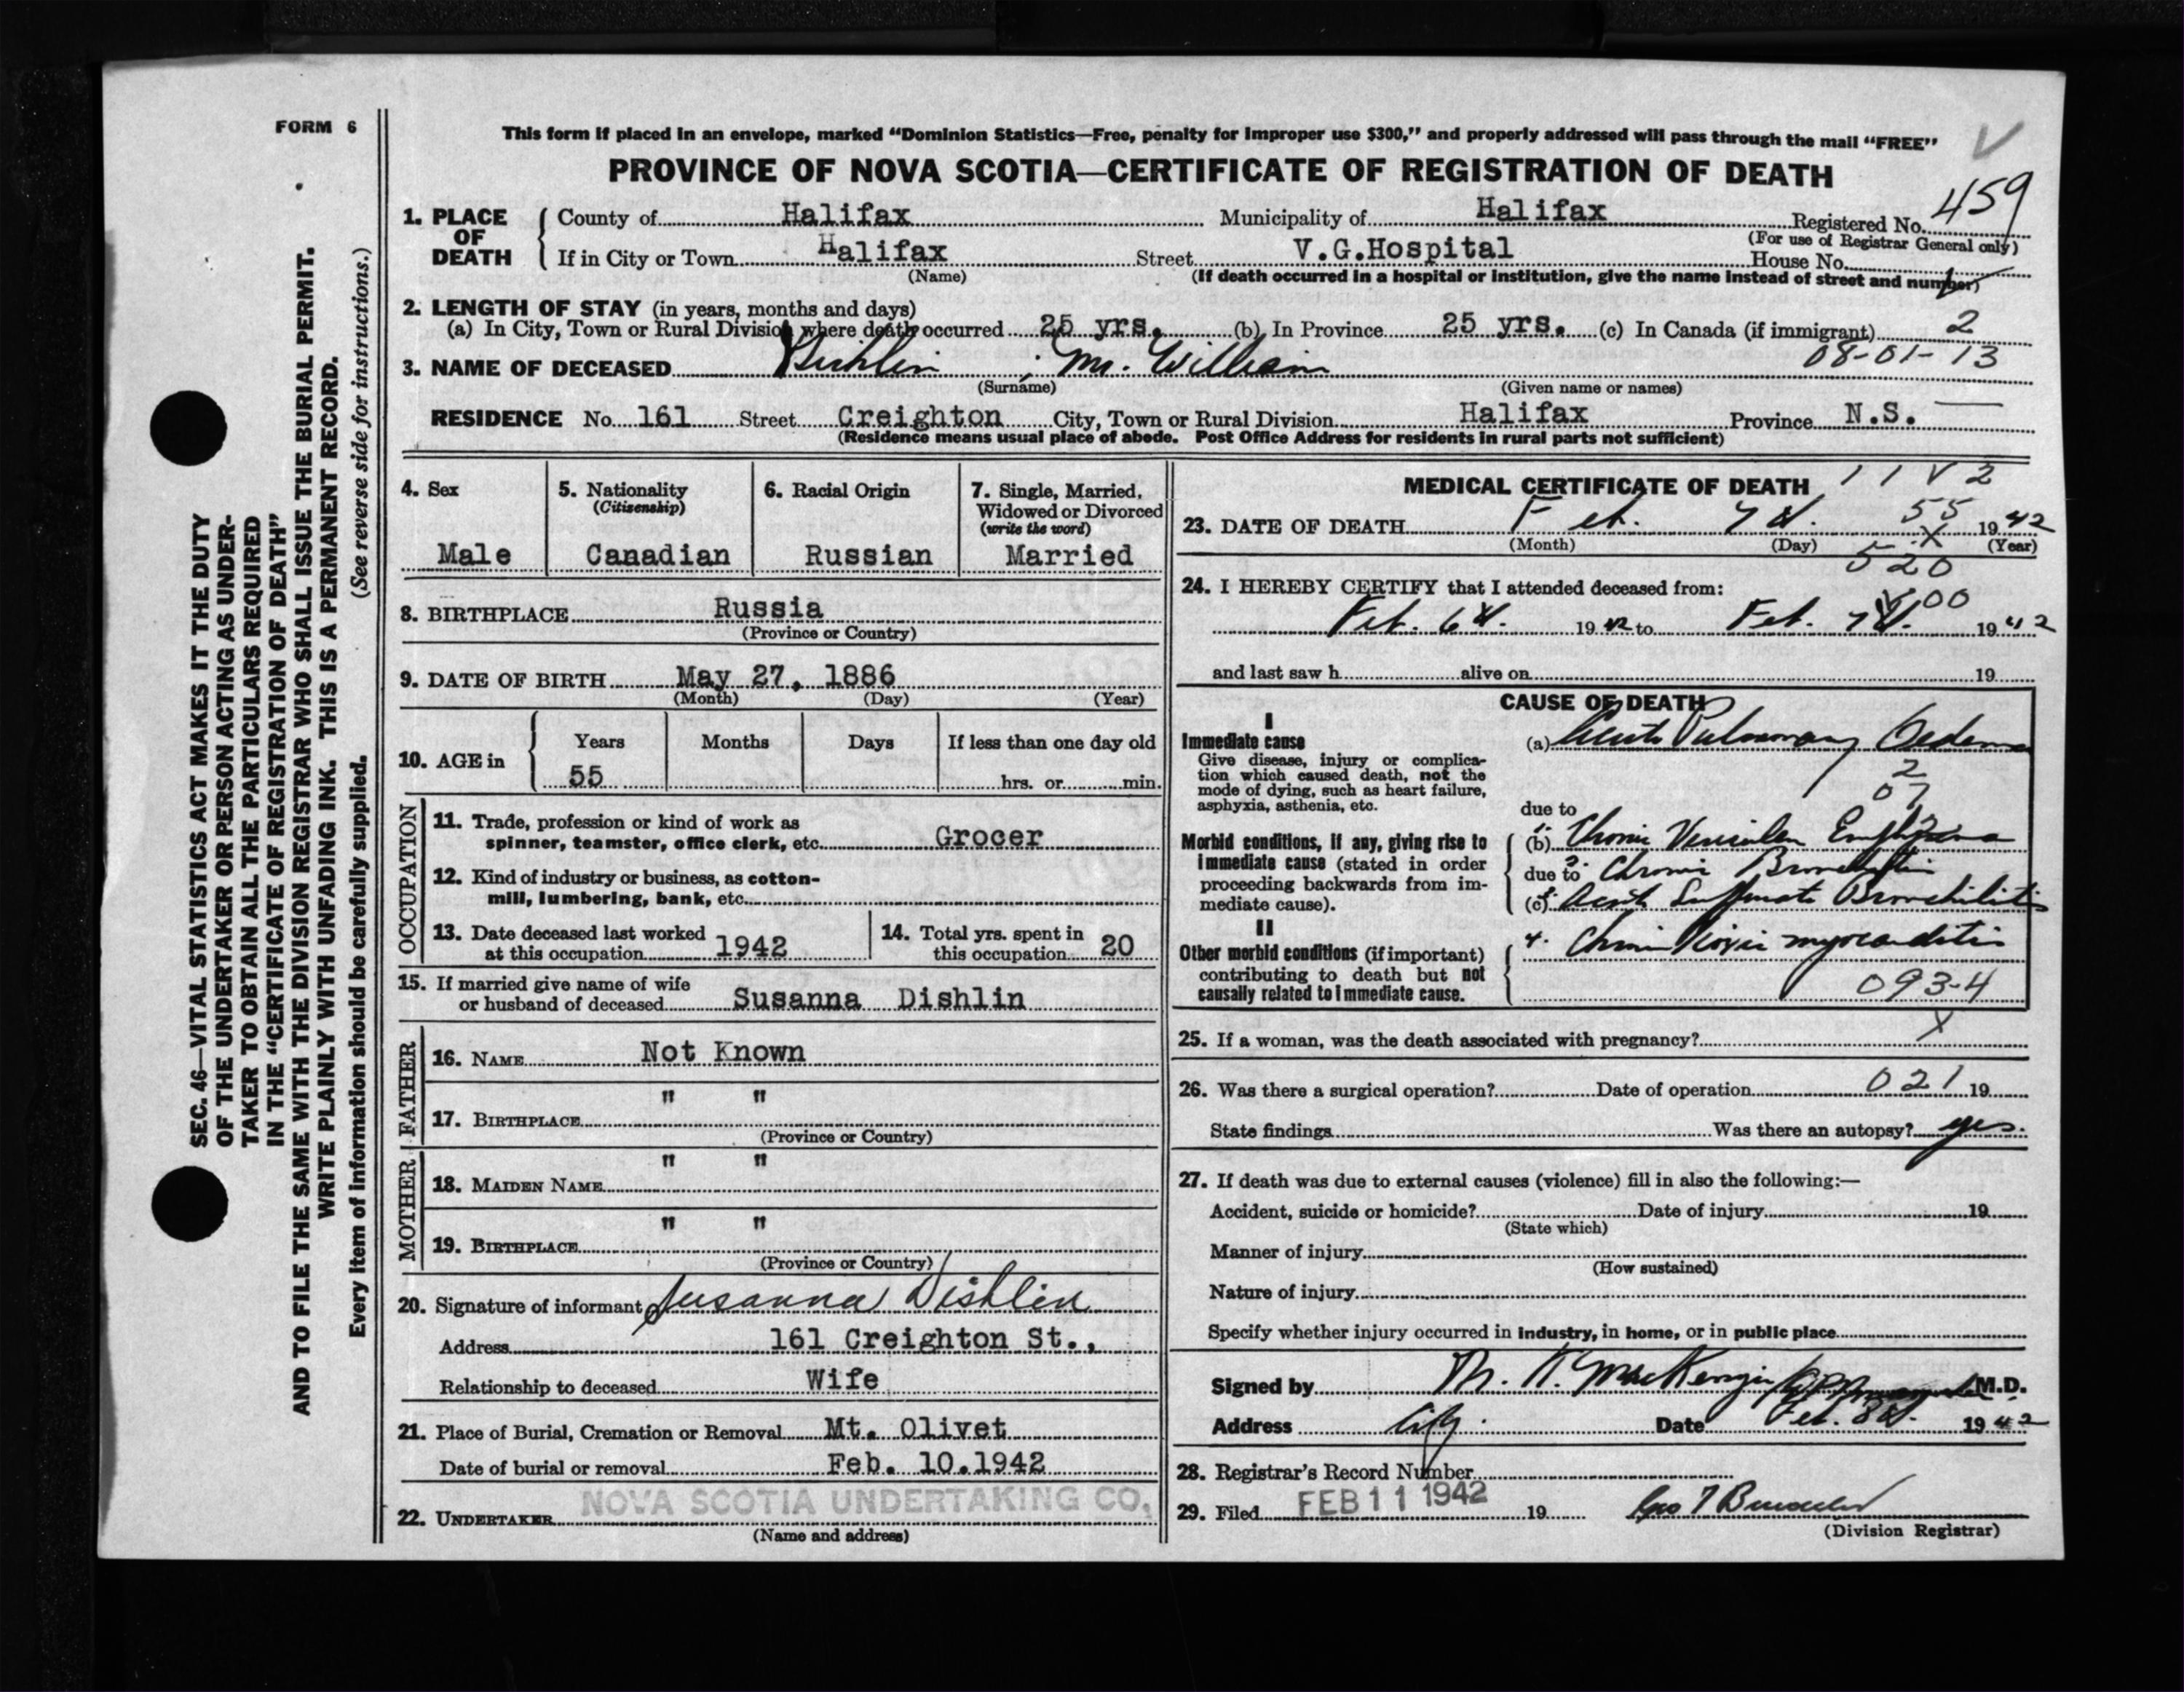 FORM 6
This form if placed in an envelope, marked “Dominion Statistics—Free, penalty for improper use $300,” and properly addressed will pass through the mail “FREE”
PROVINCE OF NOVA SCOTIA—CERTIFICATE OF REGISTRATION OF DEATH
1. PLACE OF DEATH
County of Halifax Municipality of Halifax Registered No. 459
(For use of Registrar General only)
If in City or Town Halifax Street V.G.Hospital House No.
(Name) (If death occurred in a hospital or institution, give the name instead of street and number)
2. LENGTH OF STAY (in years, months and days)
(a) In City, Town or Rural Division where death occurred 25 yrs. (b) In Province 25 yrs. (c) In Canada (if immigrant) 2
08-01-13
3. NAME OF DECEASED Mr. William
(Surname) (Given name or names)
RESIDENCE No. 161 Street Creighton City, Town or Rural Division Halifax Province N.S.
(Residence means usual place of abode. Post Office Address for residents in rural parts not sufficient)
4. Sex
Male
5. Nationality
(Citizenship)
Canadian
6. Racial Origin
Russian
7. Single, Married,
Widowed or Divorced
(write the word)
Married
8. BIRTHPLACE Russia
(Province or Country)
9. DATE OF BIRTH May 27, 1886
(Month) (Day) (Year)
10. AGE in
Years Months Days If less than one day old
55 hrs. or min.
OCCUPATION
11. Trade, profession or kind of work as
spinner, teamster, office clerk, etc. Grocer
12. Kind of industry or business, as cotton-
mill, lumbering, bank, etc.
13. Date deceased last worked
at this occupation 1942
14. Total yrs. spent in
this occupation 20
15. If married give name of wife
or husband of deceased Susanna Dishlin
FATHER
16. NAME Not Known
" "
17. BIRTHPLACE
(Province or Country)
MOTHER
" "
18. MAIDEN NAME
" "
19. BIRTHPLACE
(Province or Country)
20. Signature of informant Susanna Dishlin
Address 161 Creighton St.,
Relationship to deceased Wife
21. Place of Burial, Cremation or Removal Mt. Olivet
Date of burial or removal Feb. 10.1942
NOVA SCOTIA UNDERTAKING CO.
22. UNDERTAKER
(Name and address)
MEDICAL CERTIFICATE OF DEATH 1 1 V 2
55
23. DATE OF DEATH Feb. 7th. X 1942
(Month) (Day) (Year)
520
24. I HEREBY CERTIFY that I attended deceased from:
Feb. 6th. 1942 to Feb. 7th. 1942
and last saw h alive on 19
CAUSE OF DEATH
I
Immediate cause
Give disease, injury or complica-
tion which caused death, not the
mode of dying, such as heart failure,
asphyxia, asthenia, etc.
(a) Acute Pulmonary Oedema
2
07
due to
Morbid conditions, if any, giving rise to
immediate cause (stated in order
proceeding backwards from im-
mediate cause).
(b) 1. Chronic Vesicular Emphysema
due to 2. Chronic Bronchitis
(c) 3. Acute Bronchiolitis
II
Other morbid conditions (if important)
contributing to death but not
causally related to immediate cause.
4. Chronic Toxic myocarditis
093-4
X
25. If a woman, was the death associated with pregnancy?
26. Was there a surgical operation? Date of operation 021 19
State findings Was there an autopsy? yes.
27. If death was due to external causes (violence) fill in also the following:—
Accident, suicide or homicide? Date of injury 19
(State which)
Manner of injury
(How sustained)
Nature of injury
Specify whether injury occurred in industry, in home, or in public place
Signed by MacKenzie M.D.
Address City. Date Feb. 8th. 1942
28. Registrar's Record Number
29. Filed FEB 11 1942 19
(Division Registrar)
SEC. 46—VITAL STATISTICS ACT MAKES IT THE DUTY
OF THE UNDERTAKER OR PERSON ACTING AS UNDER-
TAKER TO OBTAIN ALL THE PARTICULARS REQUIRED
IN THE “CERTIFICATE OF REGISTRATION OF DEATH”
AND TO FILE THE SAME WITH THE DIVISION REGISTRAR WHO SHALL ISSUE THE BURIAL PERMIT.
WRITE PLAINLY WITH UNFADING INK. THIS IS A PERMANENT RECORD.
Every item of information should be carefully supplied. (See reverse side for instructions.)